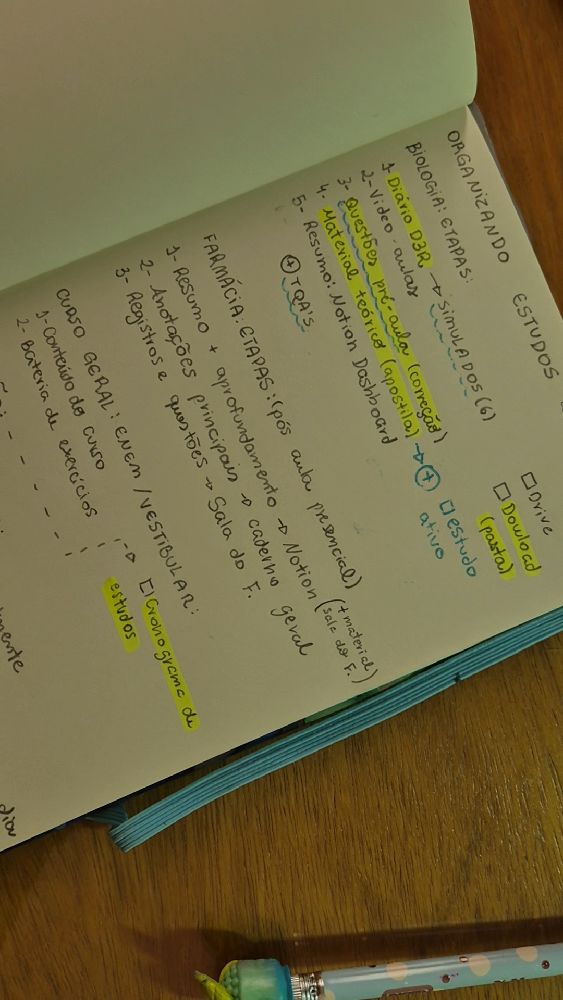 ORGANIZANDO ESTUDOS
☐ Drive
☐ Dowload
(pasta)
BIOLOGIA: ETAPAS:
1- Diário D3R → SIMULADOS (6)
2- Video-aulas
3- Questões pré-aula (correção)
4. Material teórico (apostila) → (+) ☐ estudo ativo
5- Resumo: Notion Dashboard
(+) TQA's
FARMÁCIA: ETAPAS: (pós aula presencial)
1- Resumo + aprofundamento → Notion (+ material sala do F.)
2- Anotações principais → caderno geral
3- Registros e questões → Sala do F.
CURSO GERAL: ENEM / VESTIBULAR:
1- Conteúdo do curso
2- Bateria de exercícios
→ ☐ Cronograma de
estudos